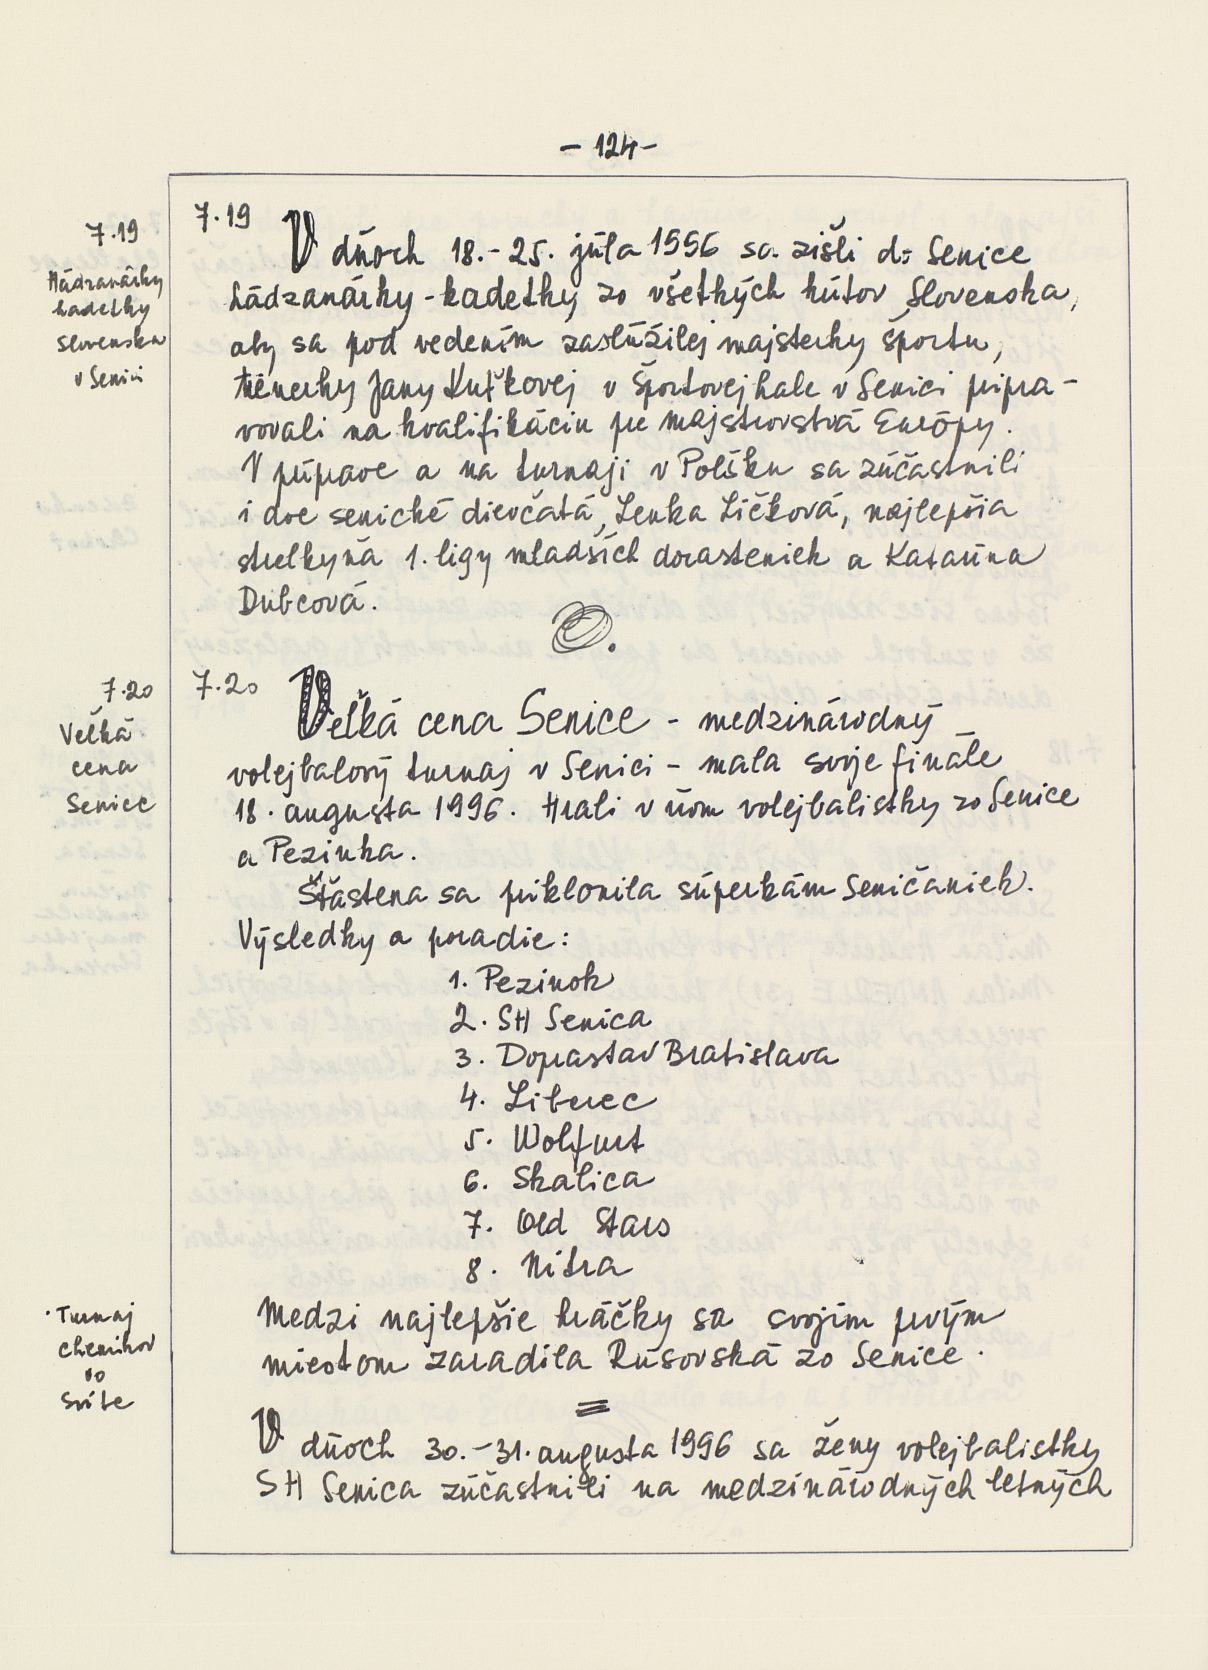 - 124 -
7.19
Hádzanárky
kadetky
Slovenska
v Senici
7.19
V dňoch 18.-25. júla 1996 sa zišli do Senice
hádzanárky - kadetky zo všetkých kútov Slovenska,
aby sa pod vedením zaslúžilej majsterky športu,
trénerky Jany Kuťkovej v Športovej hale v Senici pripra-
vovali na kvalifikáciu pre majstrovstvá Európy.
V príprave a na turnaji v Poľsku sa zúčastnili
i dve senické dievčatá, Lenka Ličková, najlepšia
strelkyňa 1. ligy mladších dorasteniek a Katarína
Dubcová.
7.20
Veľká
cena
Senice
7.20
Veľká cena Senice - medzinárodný
volejbalový turnaj v Senici - mala svoje finále
18. augusta 1996. Hrali v ňom volejbalistky zo Senice
a Pezinka.
Šťastena sa priklonila súperkám Seničaniek.
Výsledky a poradie:
1. Pezinok
2. SH Senica
3. Doprastav Bratislava
4. Liberec
5. Wolfurt
6. Skalica
7. Old Stars
8. Nitra
Medzi najlepšie hráčky sa svojím prvým
miestom zaradila Rusovská zo Senice.
Turnaj
chemikov
vo
Svite
V dňoch 30.-31. augusta 1996 sa ženy volejbalistky
SH Senica zúčastnili na medzinárodných letných